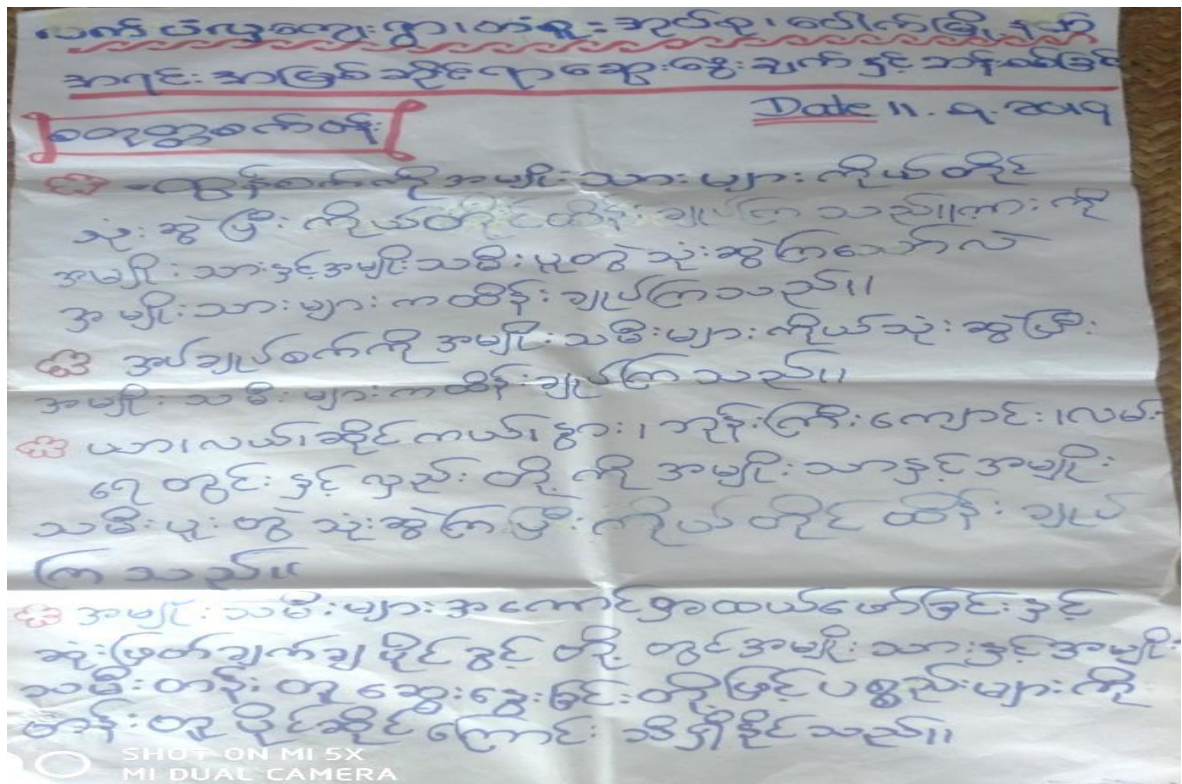 လက်ပံလှကျေးရွာ၊ တံခူးအုပ်စု၊ ပေါက်မြို့နယ်
အရင်းအမြစ်ဆိုင်ရာဆွေးနွေးချက်နှင့်ဘန်းစစ်ခြင်း
Date 11.၅.2019
စတုတ္ထစက်ဝန်း
-ထွန်စက်ကိုအမျိုးသားများကိုယ်တိုင်
သုံးဆွဲပြီးကိုယ်တိုင်ထိန်းချုပ်ကြသည်။ကားကို
အမျိုးသားနှင့်အမျိုးသမီးပူးတွဲသုံးဆွဲကြသော်လဲ
အမျိုးသားများကထိန်းချုပ်ကြသည်။
အပ်ချုပ်စက်ကိုအမျိုးသမီးများကိုယ်သုံးဆွဲပြီး
အမျိုးသမီးများကထိန်းချုပ်ကြသည်။
ယာ၊လယ်၊ဆိုင်ကယ်၊နွား၊ဘုန်းကြီးကျောင်း၊လမ်း
ရေတွင်းနှင့်လှည်းတို့ကိုအမျိုးသားနှင့်အမျိုး
သမီးပူးတွဲသုံးဆွဲကြပြီးကိုယ်တိုင်ထိန်းချုပ်
ကြသည်။
အမျိုးသမီးများအကောင်အထယ်ဖော်ခြင်းနှင့်
ဆုံးဖြတ်ချက်ချပိုင်ခွင့်တို့တွင်အမျိုးသားနှင့်အမျိုး
သမီးတန်းတူဆွေးနွေးခြင်းတို့ဖြင့်ပစ္စည်းများကို
တန်းတူပိုင်ဆိုင်ကြောင်းသိရှိနိုင်သည်။
SHOT ON MI 5X
MI DUAL CAMERA